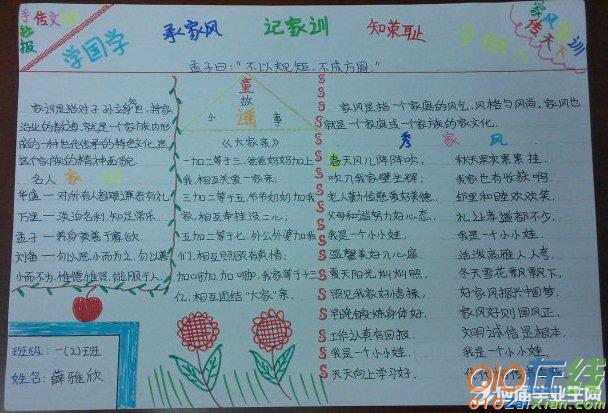 手抄报
传文
学国学
承家风
记家训
知荣耻
家风
训
传天
孟子曰:"不以规矩,不成方圆。"
家训是指对子孙立身处世、持家
治业的教诲,就是一个家族内形
成的一种世代传承的特色文化,是
这个家族的精神面貌
名人家
华盛—对所有人都要谦恭有礼
万里—淡泊名利,知足常乐.
孟子—养身莫善于寡欲
刘备—勿以恶小而为之,勿以善
小而不为.惟德惟贤,能服于人.
班级:一(2)班
姓名:薛雅欣
童
故
小
谣
事
《大家亲》
一加二等于三,爸爸妈妈加上
我,相互关爱一家亲;
三加二等于五,爷爷奶奶加我
家,相互孝挂没二心;
五加二等于七,外公外婆加我
们,相互照顾有真情;
加呀加,加呀加,我家等于十三
亿,相互团结"大家"亲。
家风是指一个家庭的风气,风格与风尚,家风也
就是一个家庭或一个家族的家文化.
秀家风
春天风儿阵阵吹,
吹入我家壁生辉;
老人勤俭慈善好美德,
父母和谐努力好心态.
我是一个小小娃,
温馨美好入心扉.
夏天阳光灿灿照,
照见我家好情操,
早晚锻炼身体好,
工作认真有回报.
我是一个小小娃,
天天向上学习好.
秋天果实累累挂,
我家也有收获啊.
邻里和睦欢欢笑,
礼让孝道都不少,
我是一个小小娃.
活泼高雅人人夸.
冬天雪花飘飘下,
好家风振兴中国梦.
家风好则国风正,
文明诚信是根本.
我是一个小小娃.
应届毕业生网
910在线
910ZaiXian.com